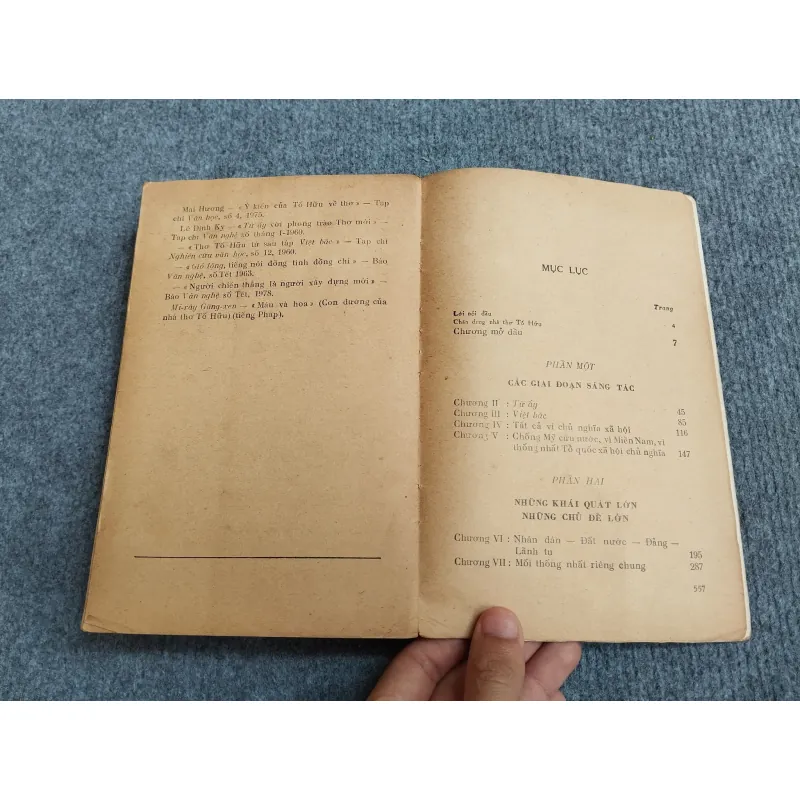 Mai Hương — « Ý kiến của Tố Hữu về thơ » — Tạp
chí Văn học, số 4, 1975.
Lê Đình Kỵ — « Từ ấy với phong trào Thơ mới » —
Tạp chí Văn nghệ số tháng 1-1960.
— « Thơ Tố Hữu từ sau tập Việt bắc » — Tạp chí
Nghiên cứu văn học, số 12, 1960.
— « Gió lộng, tiếng nói đồng tình đồng chí » — Báo
Văn nghệ, số Tết 1963.
— « Người chiến thắng là người xây dựng mới » —
Báo Văn nghệ số Tết, 1978.
Mi-rây Găng-xen — « Máu và hoa » (Con đường của
nhà thơ Tố Hữu) (tiếng Pháp).
MỤC LỤC
Trang
Lời nói đầu
Chân dung nhà thơ Tố Hữu 4
Chương mở đầu 7
PHẦN MỘT
CÁC GIAI ĐOẠN SÁNG TÁC
Chương II : Từ ấy 45
Chương III : Việt bắc 85
Chương IV : Tất cả vì chủ nghĩa xã hội 116
Chương V : Chống Mỹ cứu nước, vì Miền Nam, vì
thống nhất Tổ quốc xã hội chủ nghĩa 147
PHẦN HAI
NHỮNG KHÁI QUÁT LỚN
NHỮNG CHỦ ĐỀ LỚN
Chương VI : Nhân dân — Đất nước — Đảng —
Lãnh tụ 195
Chương VII : Mối thống nhất riêng chung 287
557